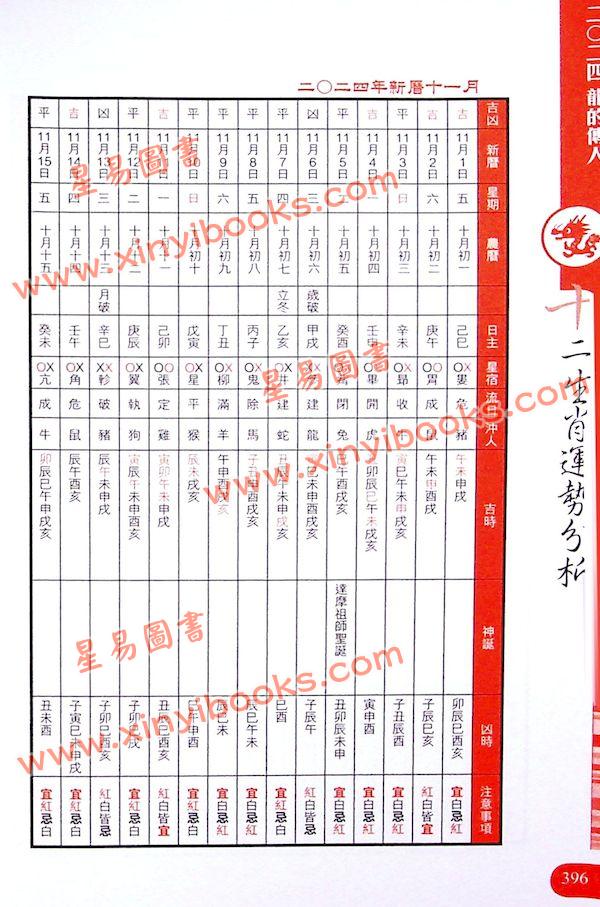 二〇二四 龍的傳人
十二生肖運勢分析
396
二〇二四年新曆十一月
吉凶 新曆 星期 農曆 日主 星宿 流日 沖人 吉時 神誕 凶時 注意事項
吉 11月1日 五 十月初一 己巳 OX婁 危 豬 午未申戌 卯辰巳酉亥 宜白忌紅
吉 11月2日 六 十月初二 庚午 OO胃 成 鼠 午未申酉戌 子辰巳亥 紅白皆宜
平 11月3日 日 十月初三 辛未 XO昴 收 牛 寅巳午申戌亥 子丑辰酉 宜白忌紅
吉 11月4日 一 十月初四 壬申 畢 開 虎 辰巳午未戌亥 寅申酉 宜紅忌白
平 11月5日 二 十月初五 癸酉 閉 兔 巳午酉戌亥 達摩祖師聖誕 丑卯辰未申 宜紅忌白
凶 11月6日 三 十月初六 歲破 甲戌 建 龍 巳未申酉亥 子辰午 紅白皆忌
平 11月7日 四 十月初七 立冬 乙亥 井 建 蛇 丑辰午未申戌 巳酉 宜白忌紅
平 11月8日 五 十月初八 丙子 OX鬼 除 馬 子丑申酉戌亥 辰巳午未 宜白忌紅
平 11月9日 六 十月初九 丁丑 OX柳 滿 羊 午申酉戌亥 辰巳未 宜白忌紅
平 11月10日 日 十月初十 戊寅 OX星 平 猴 辰未戌亥 巳午申酉 宜白忌紅
吉 11月11日 一 十月十一 己卯 OO張 定 雞 寅卯午未戌 丑辰巳酉亥 紅白皆宜
平 11月12日 二 十月十二 庚辰 OX翼 執 狗 寅辰午未申酉亥 子卯巳戌 宜紅忌白
凶 11月13日 三 十月十三 月破 辛巳 XX軫 破 豬 辰午未申戌 子卯巳酉亥 紅白皆忌
吉 11月14日 四 十月十四 壬午 OX角 危 鼠 辰午酉亥 子寅巳未申戌 宜紅忌白
平 11月15日 五 十月十五 癸未 OX亢 成 牛 卯辰巳午申戌亥 丑未酉 宜紅忌白
星易圖書
www.xinyibooks.com
星易圖書
www.xinyibooks.com
星易圖書
www.xinyibooks.com